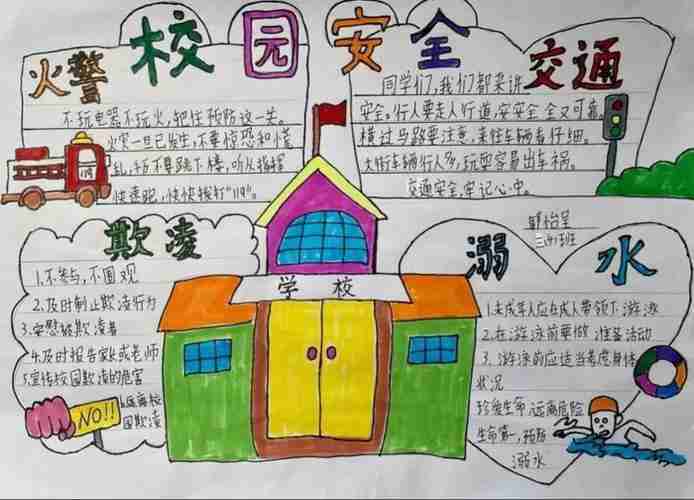 校园安全
火警
不玩电器不玩火，把住预防这一关。
火灾一旦已发生，不要惊恐和慌
乱，切不要跳下楼，听从指挥
快速跑，快快拨打“119”。
119
交通
同学们，我们都来讲
安全。行人要走人行道，安安全全又可靠。
横过马路要注意，来往车辆看仔细。
大街车辆行人多，玩耍容易出车祸。
交通安全，牢记心中。
欺凌
1.不参与，不围观
2.及时制止欺凌行为
3.安慰被欺凌者
4.及时报告家长或老师
5.宣传校园欺凌的危害
6.远离校
园欺凌
NO!!
学校
怡呈
班
溺水
1.未成年人应在成人带领下游泳
2.在游泳前要做准备活动
3.游泳前应适当考虑身体
状况
珍爱生命，远离危险
生命第一，预防
溺水